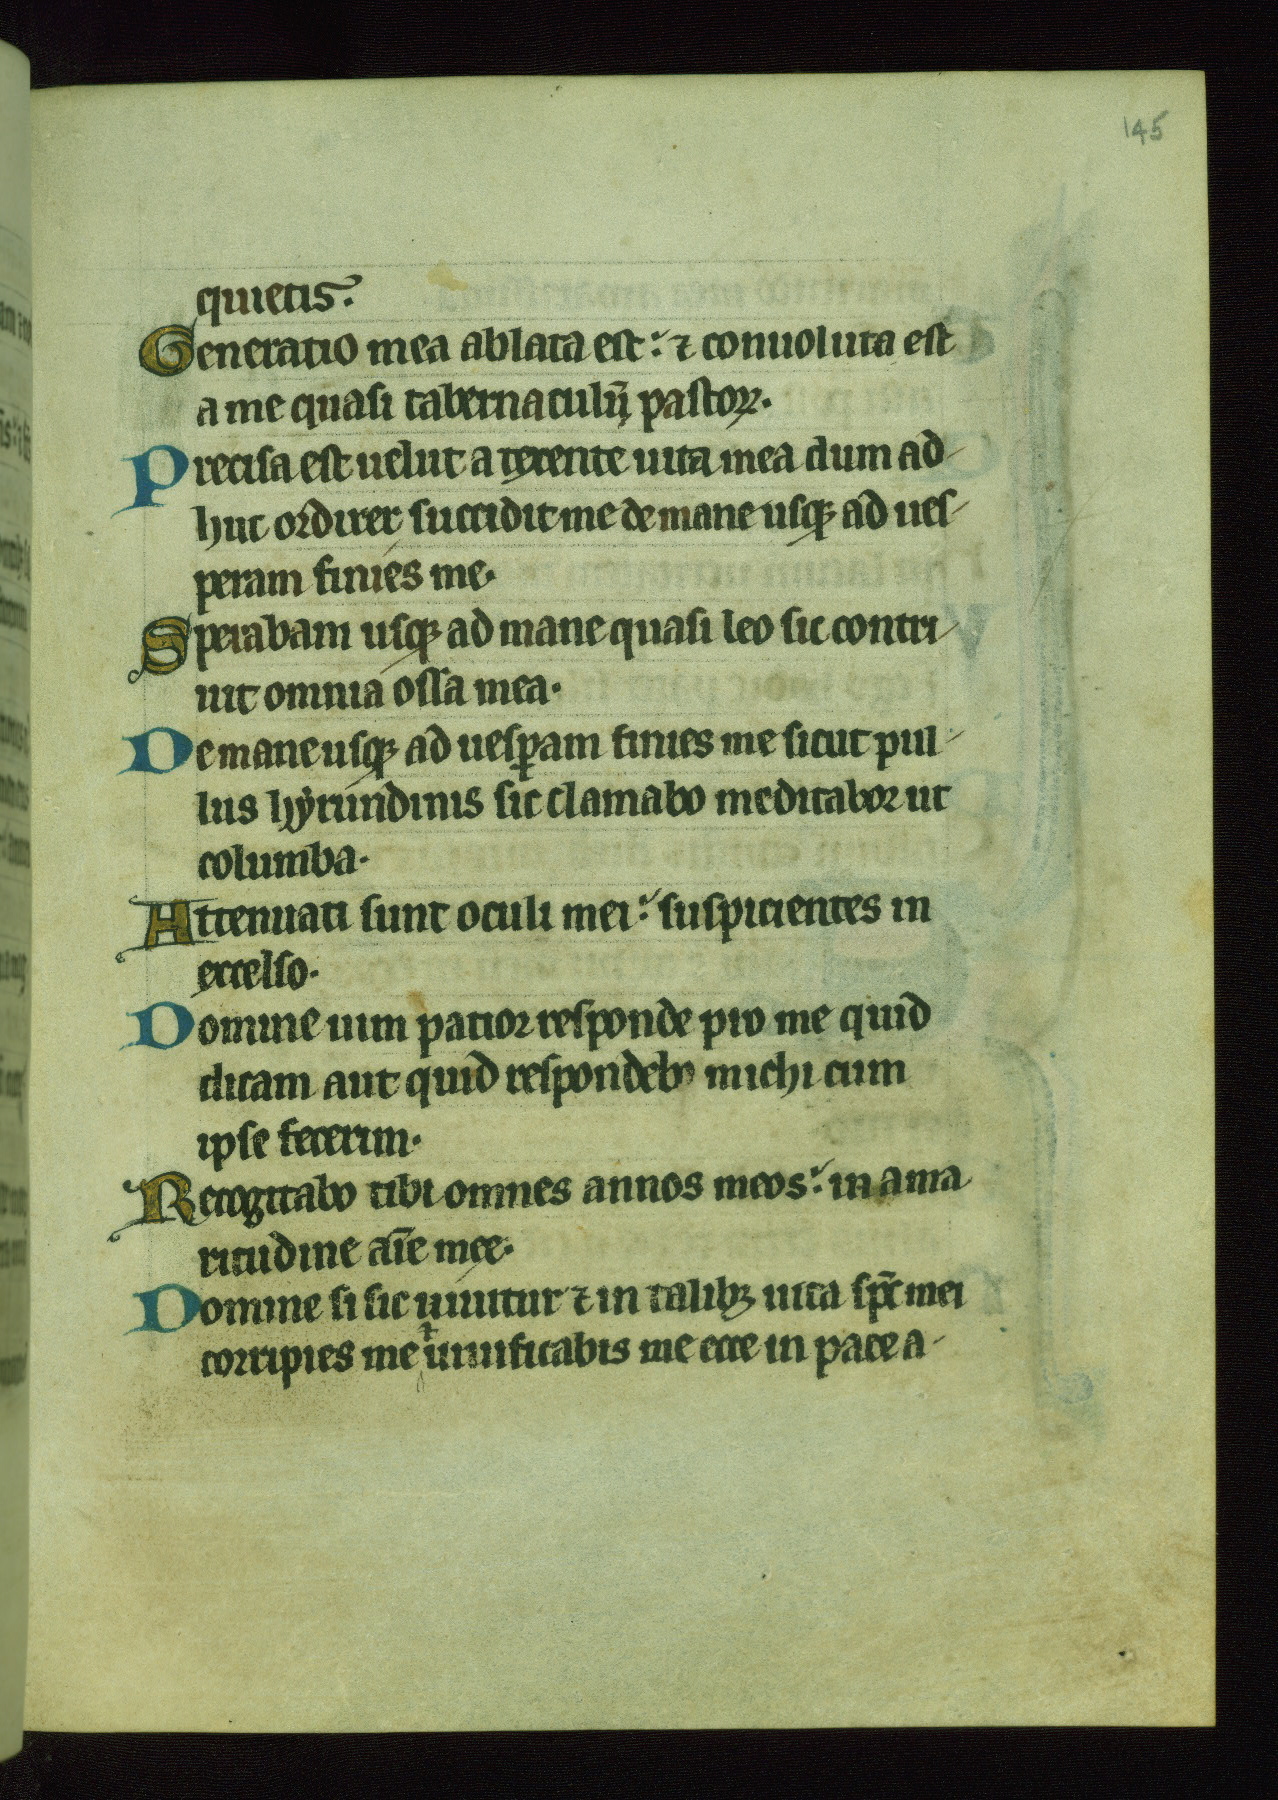 145
quietis.
Generatio mea ablata est: ⁊ conuoluta est
a me quasi tabernaculū pastoꝝ.
Precisa est uelut a texente uita mea dum ad
huc ordirer succidit me de mane usqꝫ ad ues
peram finies me.
Sperabam usqꝫ ad mane quasi leo sic contri
uit omnia ossa mea.
De mane usqꝫ ad uesꝑam finies me sicut pul
lus hyrundinis sic clamabo meditabor ut
columba.
Attenuati sunt oculi mei: suspicientes in
excelso.
Domine uim patior responde pro me quid
dicam aut quid respondebo michi cum
ipse fecerim.
Recogitabo tibi omnes annos meos: in ama
ritudine aīe mee.
Domine si sic uiuitur ⁊ in talibꝫ uita spc̄ mei
corripies me ⁊ uiuificabis me ecce in pace a